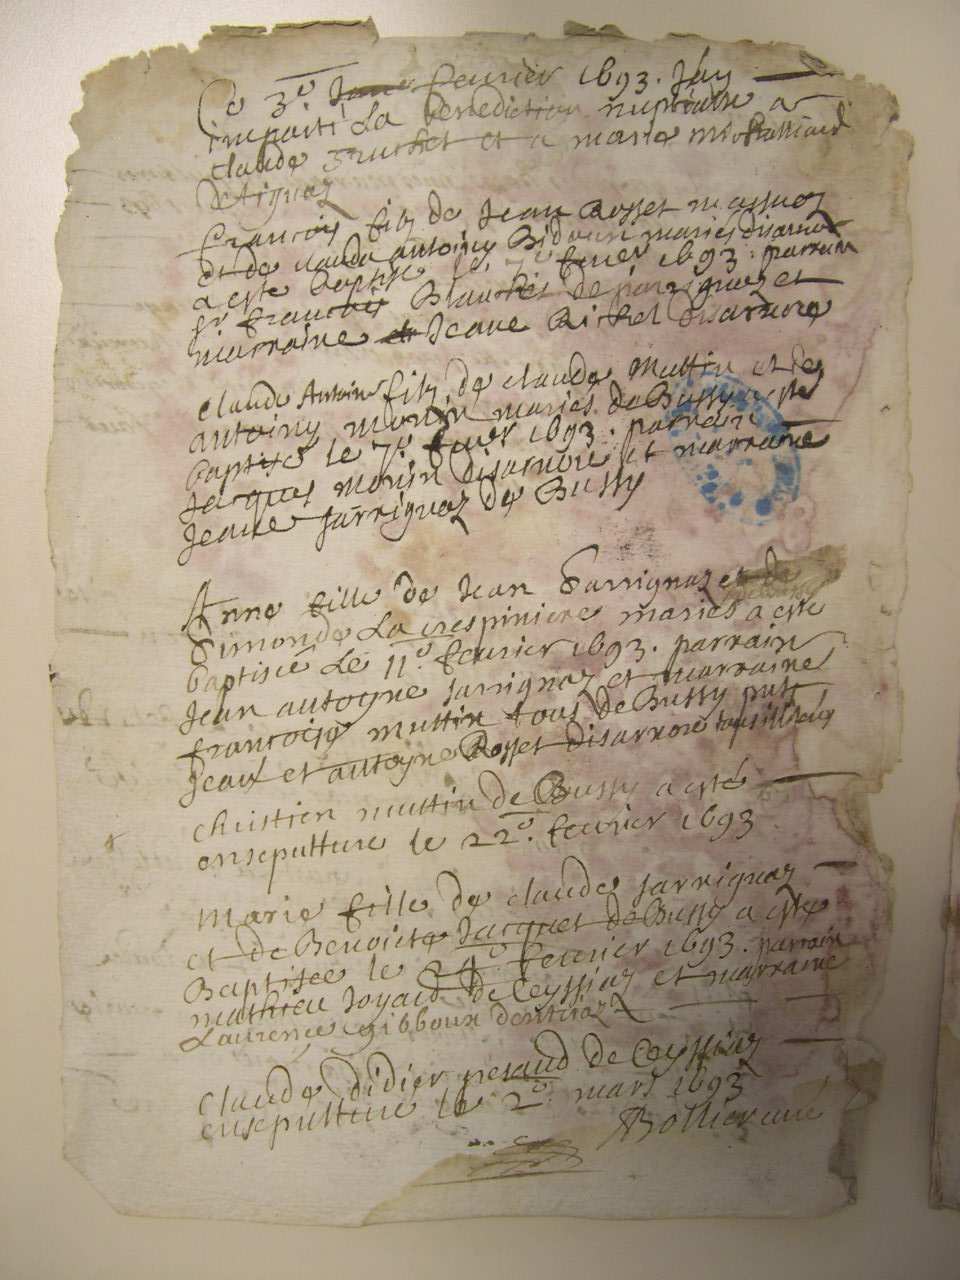 Ce 3e. fevrier 1693. Jay
imparti La benediction nuptialle a
claude et a marie
D'Aignoz
francois filz de Jean Rosset massuez
et de clauda antoiny mariés disarnore
a esté baptisé le 7e fevrier 1693. parrain
Sr. francois et
marraine Jeane Disarnore
Claude Antoine filz de claude Muttin et de
antoiny monin mariés de Bussy a esté
baptisé le 7e. fevrier 1693. parrain
Jacques monin disarnore et marraine
Jeane Jarrignoz de Bussy
Anne fille de Jean Jarrignoz et de
Simonde La crespiniere mariés a esté
baptisée Le 11e. fevrier 1693. parrain
Jean antoyne Jarrignoz et marraine
francoise muttin tous de Bussy
Jean et antoyne Rosset disarnore
Christien muttin de Bussy a esté
ensepulturé le 22e. fevrier 1693
Marie fille de claude Jarrignoz
et de Benoiste Jacquet de Bussy a esté
Baptisée le 24e fevrier 1693. parrain
mathieu Joyard de Ceyssiaz et marraine
Laurence gibboux
Claude didier peraud de Ceyssiaz
ensepulturé le 2e. mars 1693
Bollier curé